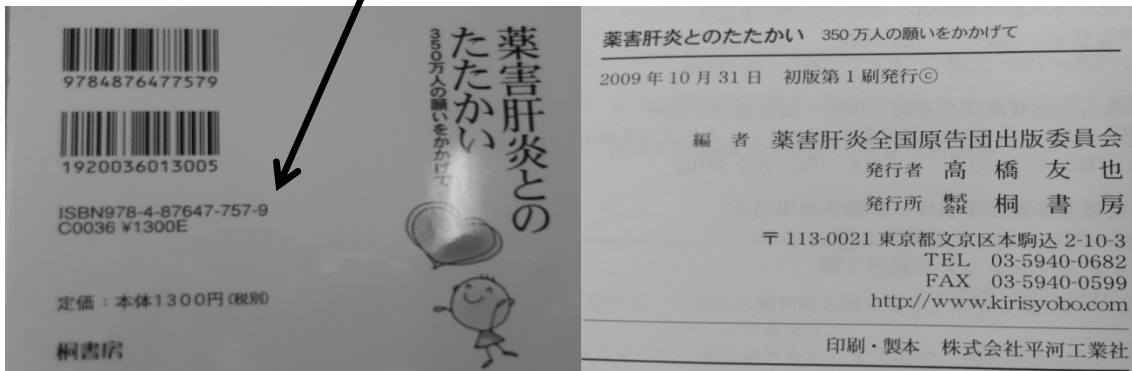 9784876477579
1920036013005
ISBN978-4-87647-757-9
C0036 ¥1300E
定価：本体1300円(税別)
桐書房
薬害肝炎との
たたかい
350万人の願いをかかげて
薬害肝炎とのたたかい 350万人の願いをかかげて
2009年10月31日 初版第1刷発行©
編者 薬害肝炎全国原告団出版委員会
発行者 高橋友也
発行所 株式会社 桐書房
〒113-0021 東京都文京区本駒込 2-10-3
TEL 03-5940-0682
FAX 03-5940-0599
http://www.kirisyobo.com
印刷・製本 株式会社平河工業社